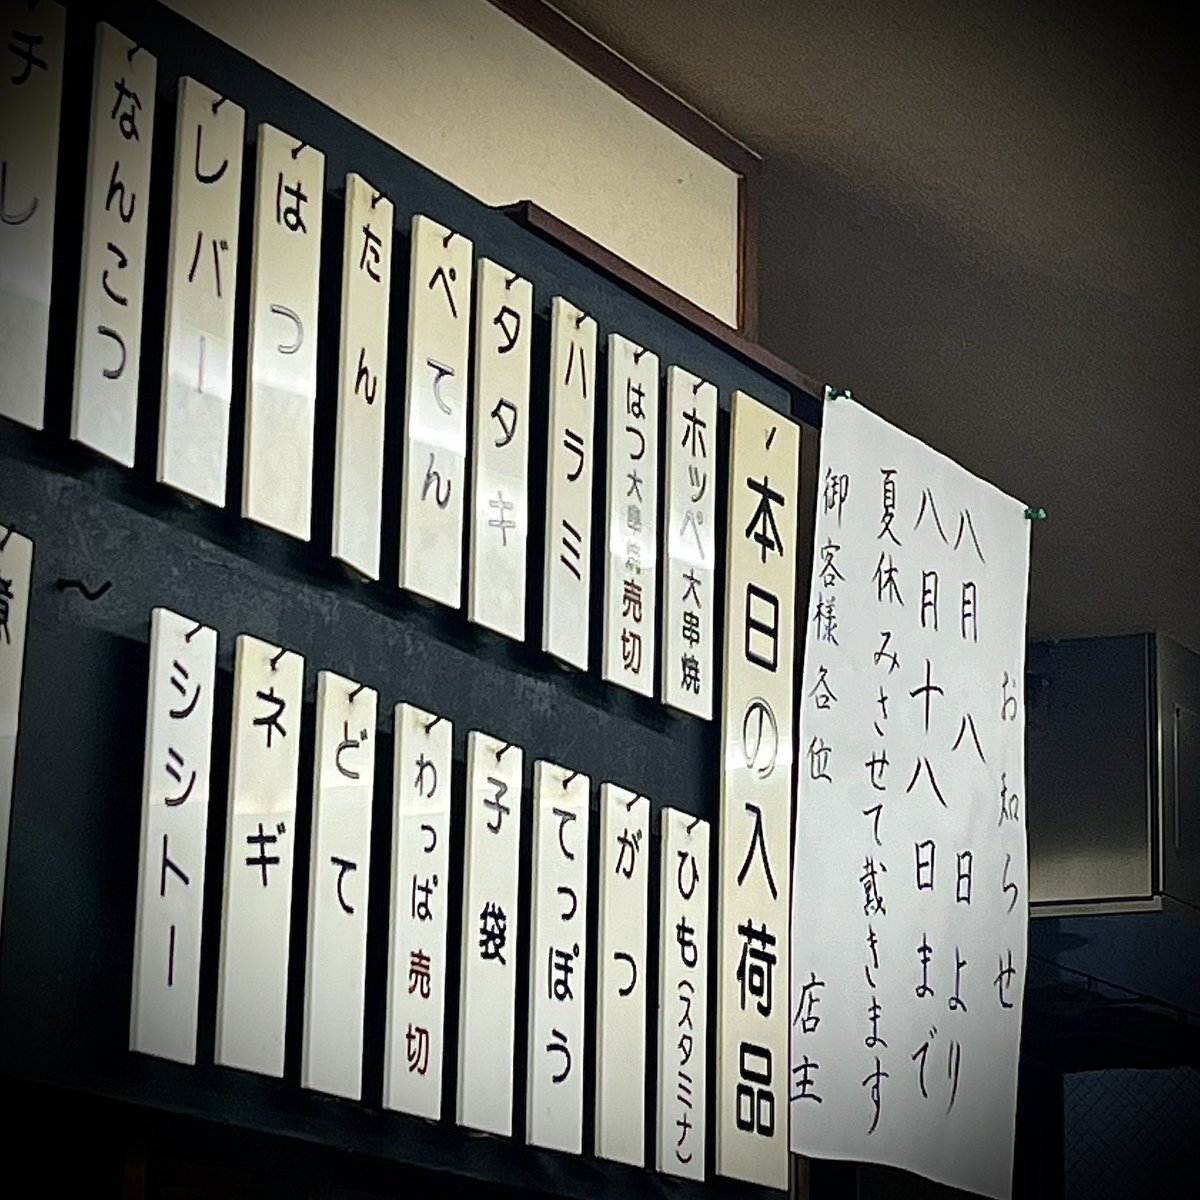 お知らせ
八月八日より
八月十八日まで
夏休みさせて戴きます
御客様各位
店主
本日の入荷品
ホッペ大串焼
はつ大串焼売切
ハラミ
タタキ
ぺてん
たん
はつ
レバー
なんこつ
ひも(スタミナ)
がつ
てっぽう
子袋
わっぱ売切
どて
ネギ
シシトー